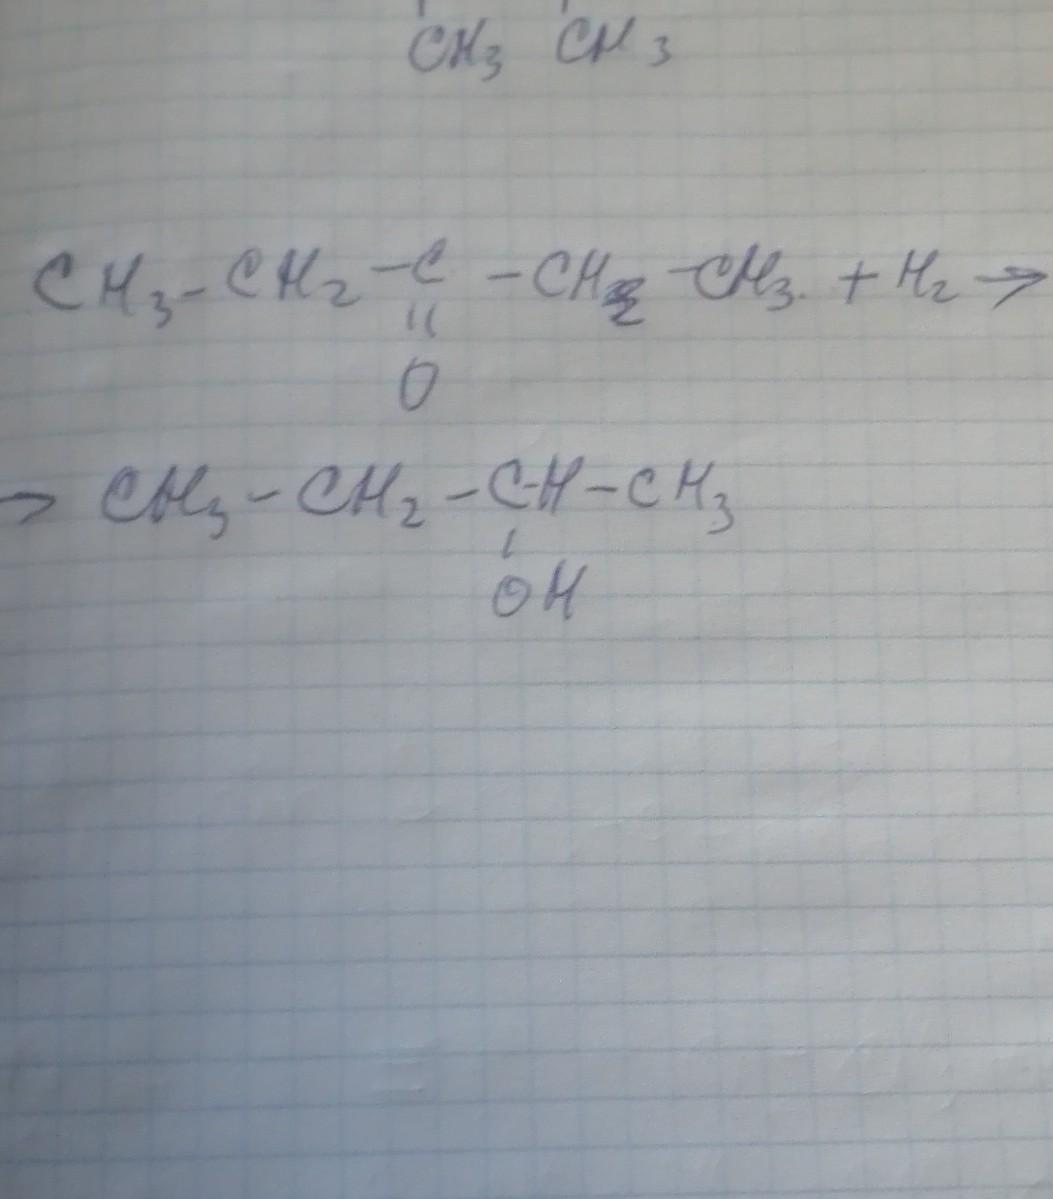 CH₃ CH₃
CH₃-CH₂-C-CH₂-CH₃ + H₂ →
||
O
→ CH₃-CH₂-CH-CH₃
|
OH